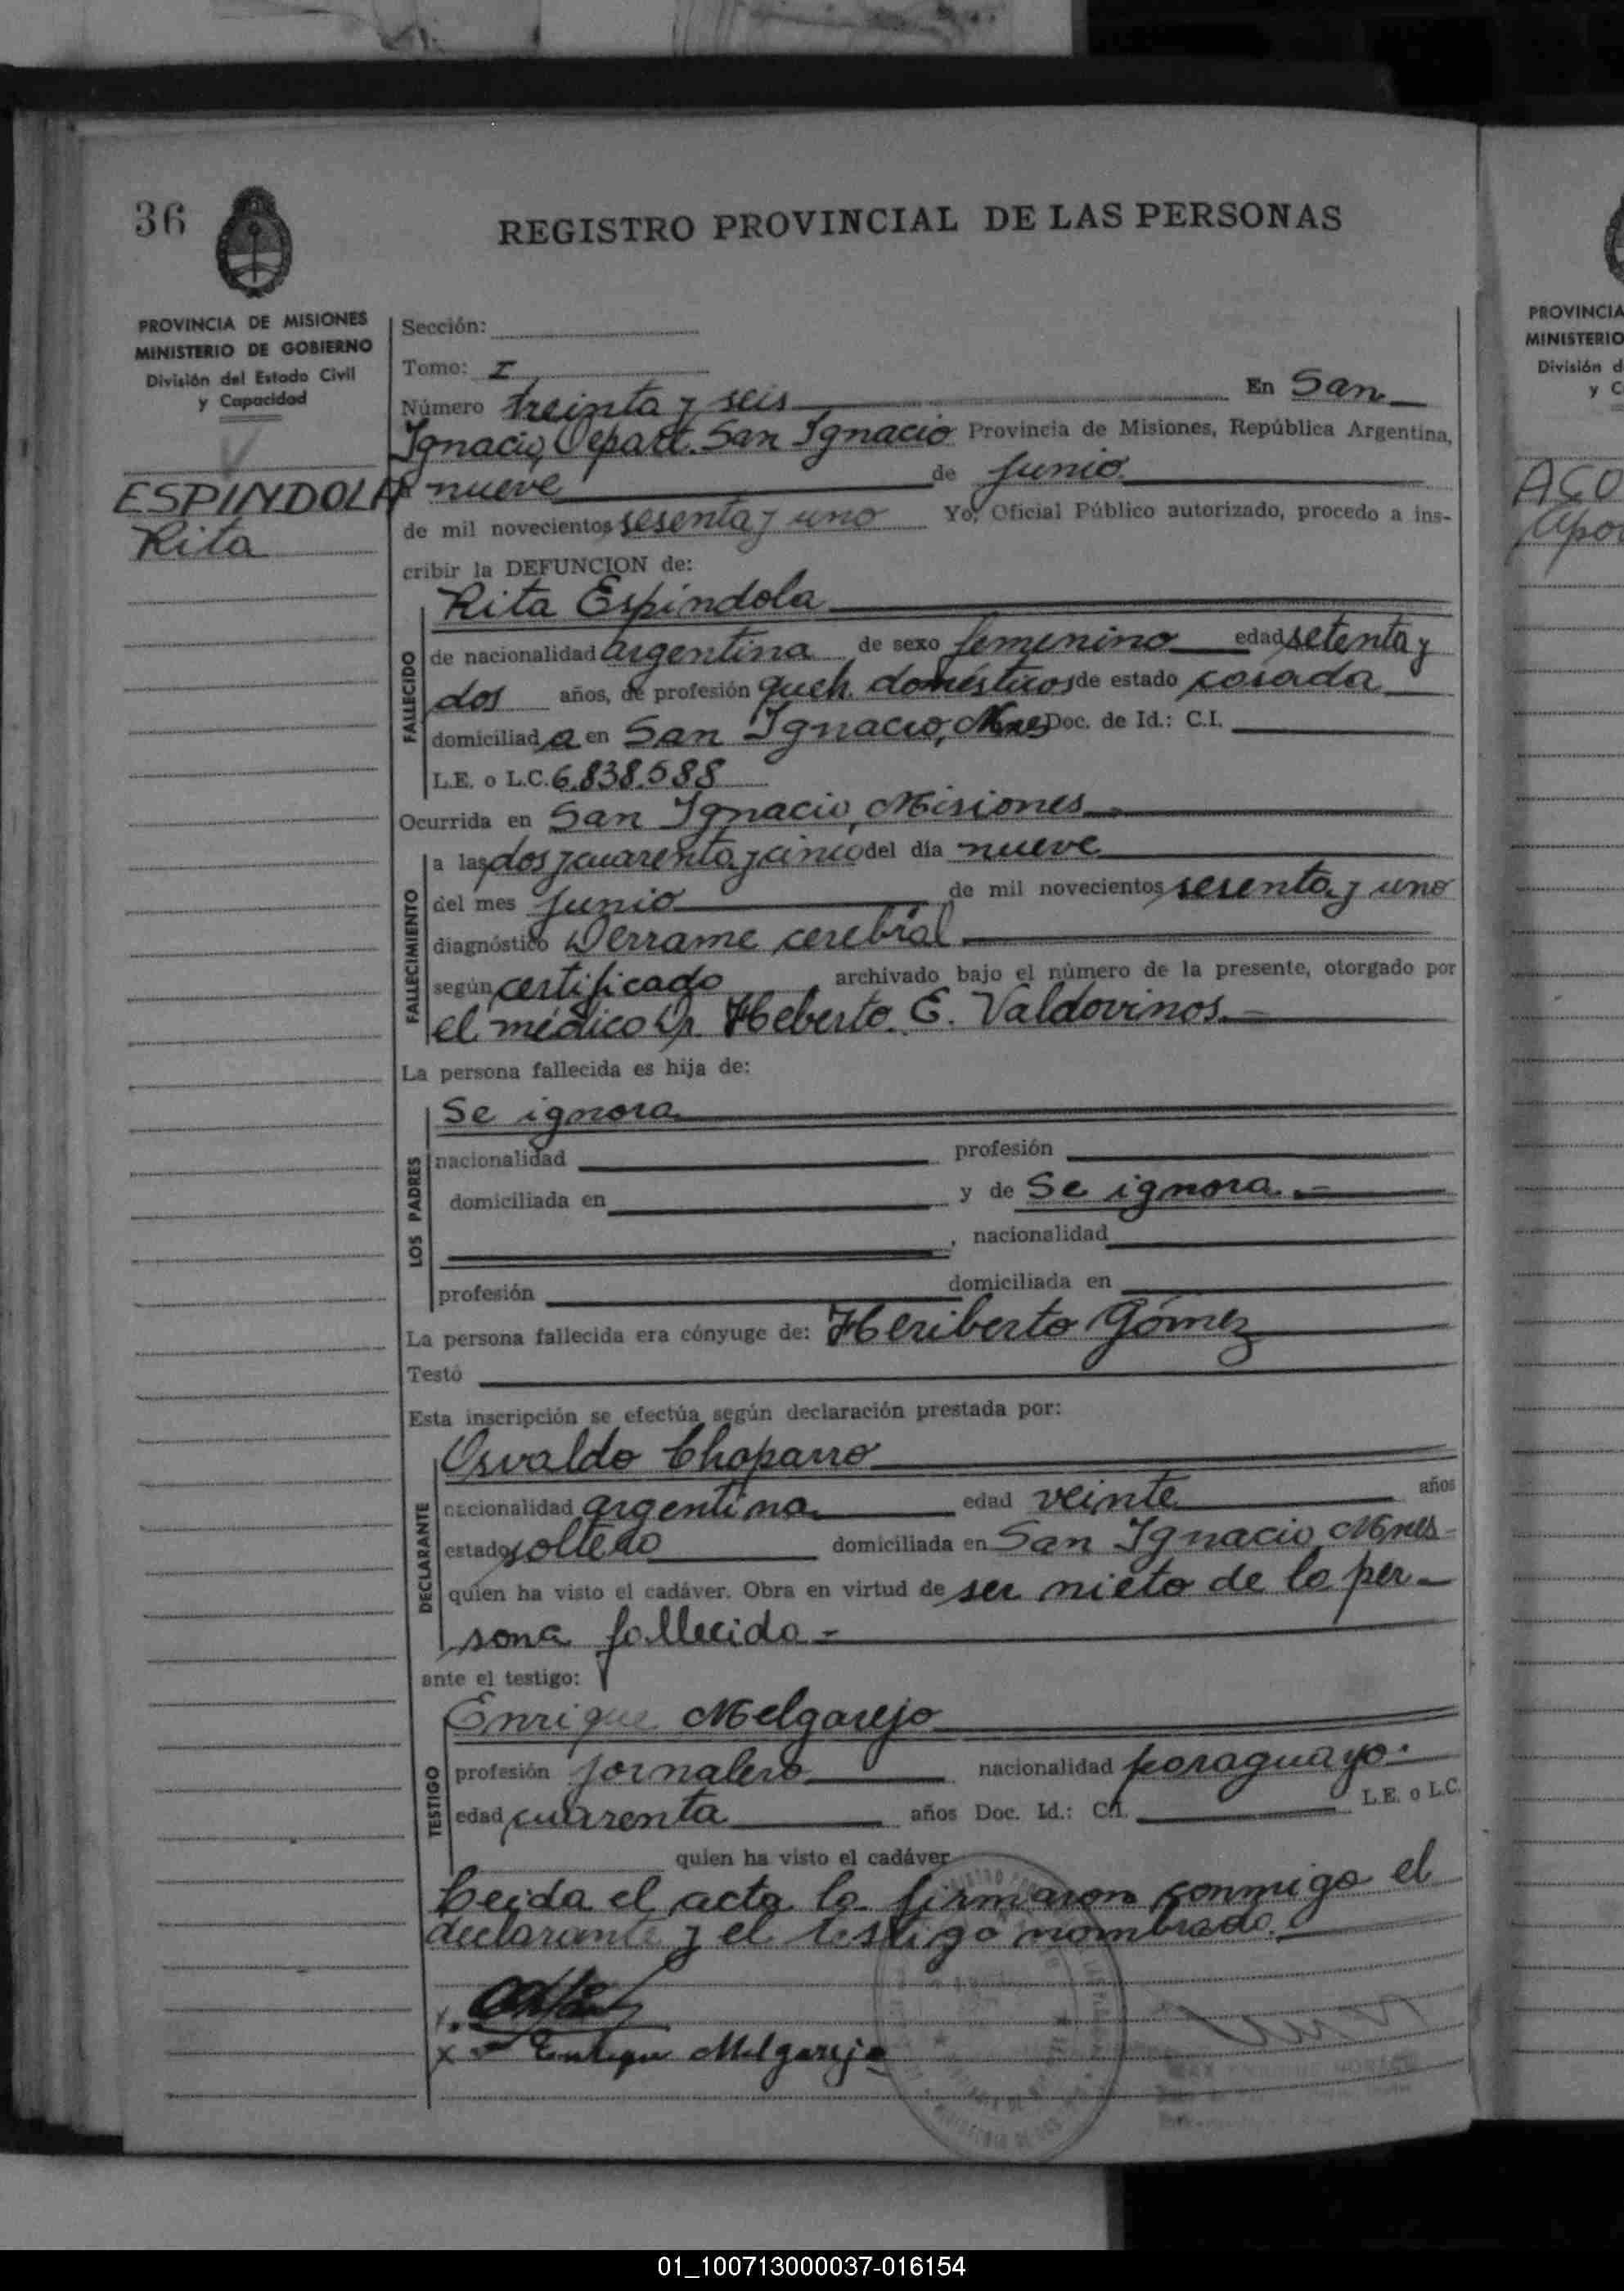 36
REGISTRO PROVINCIAL DE LAS PERSONAS
PROVINCIA DE MISIONES
MINISTERIO DE GOBIERNO
División del Estado Civil
y Capacidad
ESPINDOLA
Rita
Sección:
Tomo: I
Número treinta y seis En San
Ignacio, Depart. San Ignacio Provincia de Misiones, República Argentina,
a nueve de Junio
de mil novecientos sesenta y uno Yo, Oficial Público autorizado, procedo a ins-
cribir la DEFUNCION de:
FALLECIDO
Rita Espíndola
de nacionalidad argentina de sexo femenino edad setenta y
dos años, de profesión queh. domésticos de estado casada
domiciliad a en San Ignacio, Mnes Doc. de Id.: C.I.
L.E. o L.C. 6.838.588
Ocurrida en San Ignacio, Misiones
FALLECIMIENTO
a las dos y cuarenta y cinco del día nueve
del mes Junio de mil novecientos sesenta y uno
diagnóstico Derrame cerebral
según certificado archivado bajo el número de la presente, otorgado por
el médico Dr. Heberto E. Valdovinos
La persona fallecida es hija de:
LOS PADRES
Se ignora
nacionalidad profesión
domiciliada en y de Se ignora.
, nacionalidad
profesión domiciliada en
La persona fallecida era cónyuge de: Heriberto Gómez
Testó
Esta inscripción se efectúa según declaración prestada por:
DECLARANTE
Osvaldo Chaparro
nacionalidad argentina edad veinte años
estado soltero domiciliada en San Ignacio Mnes
quien ha visto el cadáver. Obra en virtud de ser nieto de la per-
sona fallecida -
ante el testigo:
TESTIGO
Enrique Melgarejo
profesión jornalero nacionalidad paraguayo.
edad cuarenta años Doc. Id.: C.I. L.E. o L.C.
quien ha visto el cadáver
Leida el acta la firmaron conmigo el
declarante y el testigo nombrado.
x.
x Enrique Melgarejo
PROVINCIA
MINISTERIO
División d
y C
ACO
Apo
01_100713000037-016154